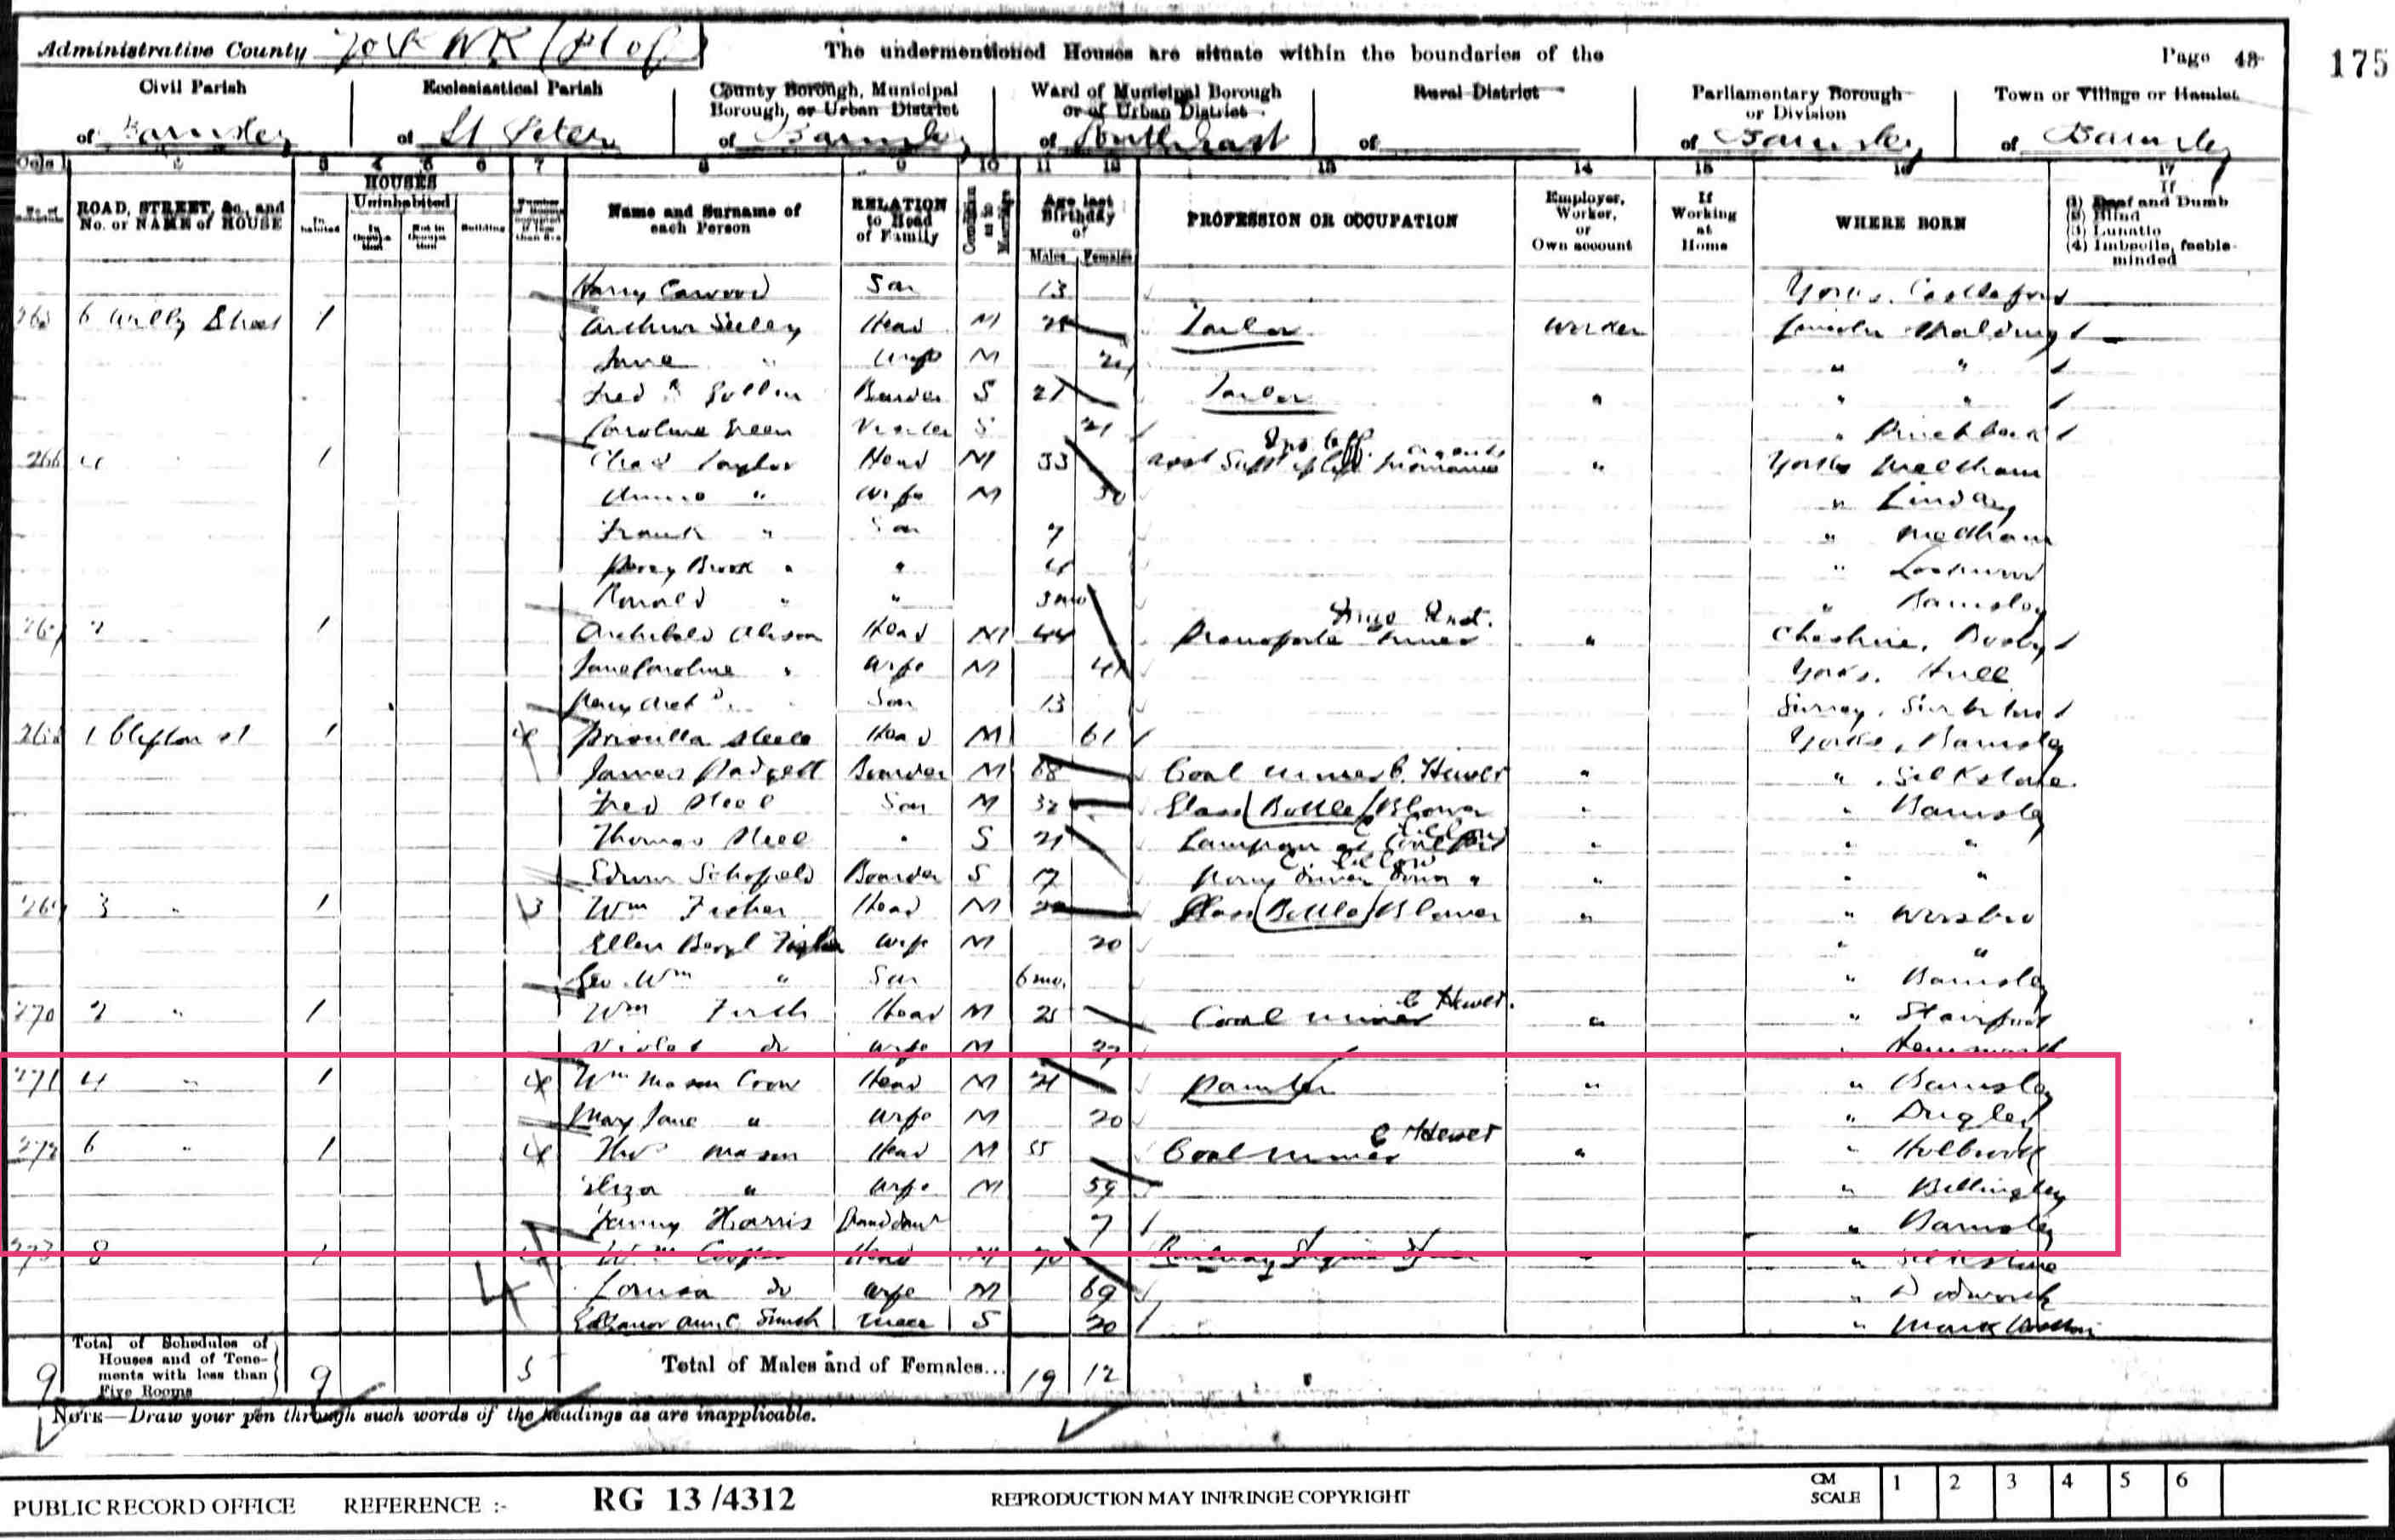 Administrative County York WR (Pt of)
The undermentioned Houses are situate within the boundaries of the
Page 48
175
Civil Parish
of Barnsley
Ecclesiastical Parish
of St Peter
County Borough, Municipal
Borough, or Urban District
of Barnsley
Ward of Municipal Borough
or of Urban District
of South East
Rural District
of
Parliamentary Borough
or Division
of Barnsley
Town or Village or Hamlet
of Barnsley
3 4 5 6 7 8 9 10 11 12 13 14 15 16 17
ROAD, STREET, &c., and
No. or NAME of HOUSE
HOUSES
Uninhabited
Building
Name and Surname of
each Person
RELATION
to Head
of Family
Condition
as to
Marriage
Age last
Birthday
of
Males Females
PROFESSION OR OCCUPATION
Employer,
Worker,
or
Own account
If
Working
at
Home
WHERE BORN
If
(1) Deaf and Dumb
(2) Blind
(3) Lunatic
(4) Imbecile, feeble-
minded
Harry Cawood Son 13 Yorks. Castleford
6 Street 1 Arthur Seeley Head M Tailor Worker Lincoln Spalding
Jane " Wife M " "
Fred Boarder S 27 Tailor " " "
Caroline Green Visitor S 21 " Pinchbeck
266 4 " 1 Chas Taylor Head M 33 Asst Supt of Life Insurance agents " Yorks Meltham
" Wife M 30 " Lindley
Frank " Son 7 " Meltham
Percy Brook " " 4 " Lockwood
Ronald " " 3mo " Barnsley
267 2 " 1 Archibald Head M 44 Pianoforte Tuner " Cheshire,
Jane Caroline " Wife M 41 Yorks. Hull
Son 13 Surrey. Surbiton
268 1 Clifton St 1 4 Priscilla Steele Head M 61 Yorks, Barnsley
James Padgett Boarder M 68 Coal Miner C. Hewer " " Silkstone
Fred Steel Son M 32 Glass (Bottle) Blower " " Barnsley
Thomas Steel " S 21 Lampman at Coal Pit " " "
Edwin Schofield Boarder S 17 Pony Driver Down " " " "
269 3 " 1 3 Wm Fisher Head M Glass (Bottle) Blower " " Worsbro
Ellen Beryl Fisher Wife M 20 " "
Geo. Wm " Son 6 mo. " Barnsley
270 2 " 1 Wm Firth Head M 25 Coal Miner C Hewer. " " Stairfoot
Violet do Wife M 27 " Hemsworth
271 4 " 1 4 Wm Mason Crow Head M 21 Painter " " Barnsley
Mary Jane " Wife M 20 "
272 6 " 1 4 Thos Mason Head M 55 Coal Miner C Hewer " " Holbrook
Eliza " Wife M 59 " Billingley
Fanny Harris Grand daur 7 " Barnsley
273 8 1 Wm Cooper Head M 70 Railway Engine Driver " " Silkstone
Louisa do Wife M 69 " Dodworth
Eleanor Ann C. Smith Niece S 20 "
9 Total of Schedules of
Houses and of Tene-
ments with less than
Five Rooms 9 5 Total of Males and of Females... 19 12
NOTE—Draw your pen through such words of the headings as are inapplicable.
PUBLIC RECORD OFFICE REFERENCE :- RG 13/4312 REPRODUCTION MAY INFRINGE COPYRIGHT CM SCALE 1 2 3 4 5 6